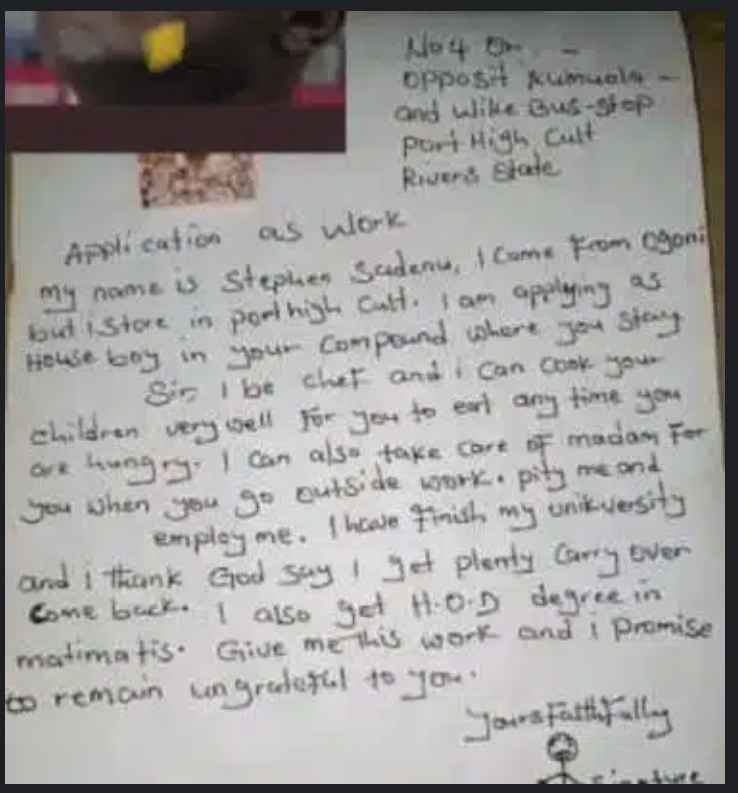 No 4
opposit Rumuola -
and wike Bus-stop
port High Cult
Rivers State
Application as work
my name is Stephen Scadenu, I Come from Ogoni
but i store in port high Cult. I am applying as
House boy in your compound where you stay
Sir I be chef and i can cook your
children very well for you to eat any time you
are hungry. I can also take care of madam For
you when you go outside work. pity me and
employ me. I have finish my unikversity
and i thank God say I get plenty carry over
Come back. I also get H.O.D degree in
matimatis. Give me this work and I promise
to remain ungrateful to you.
yours Faithfully
Signature